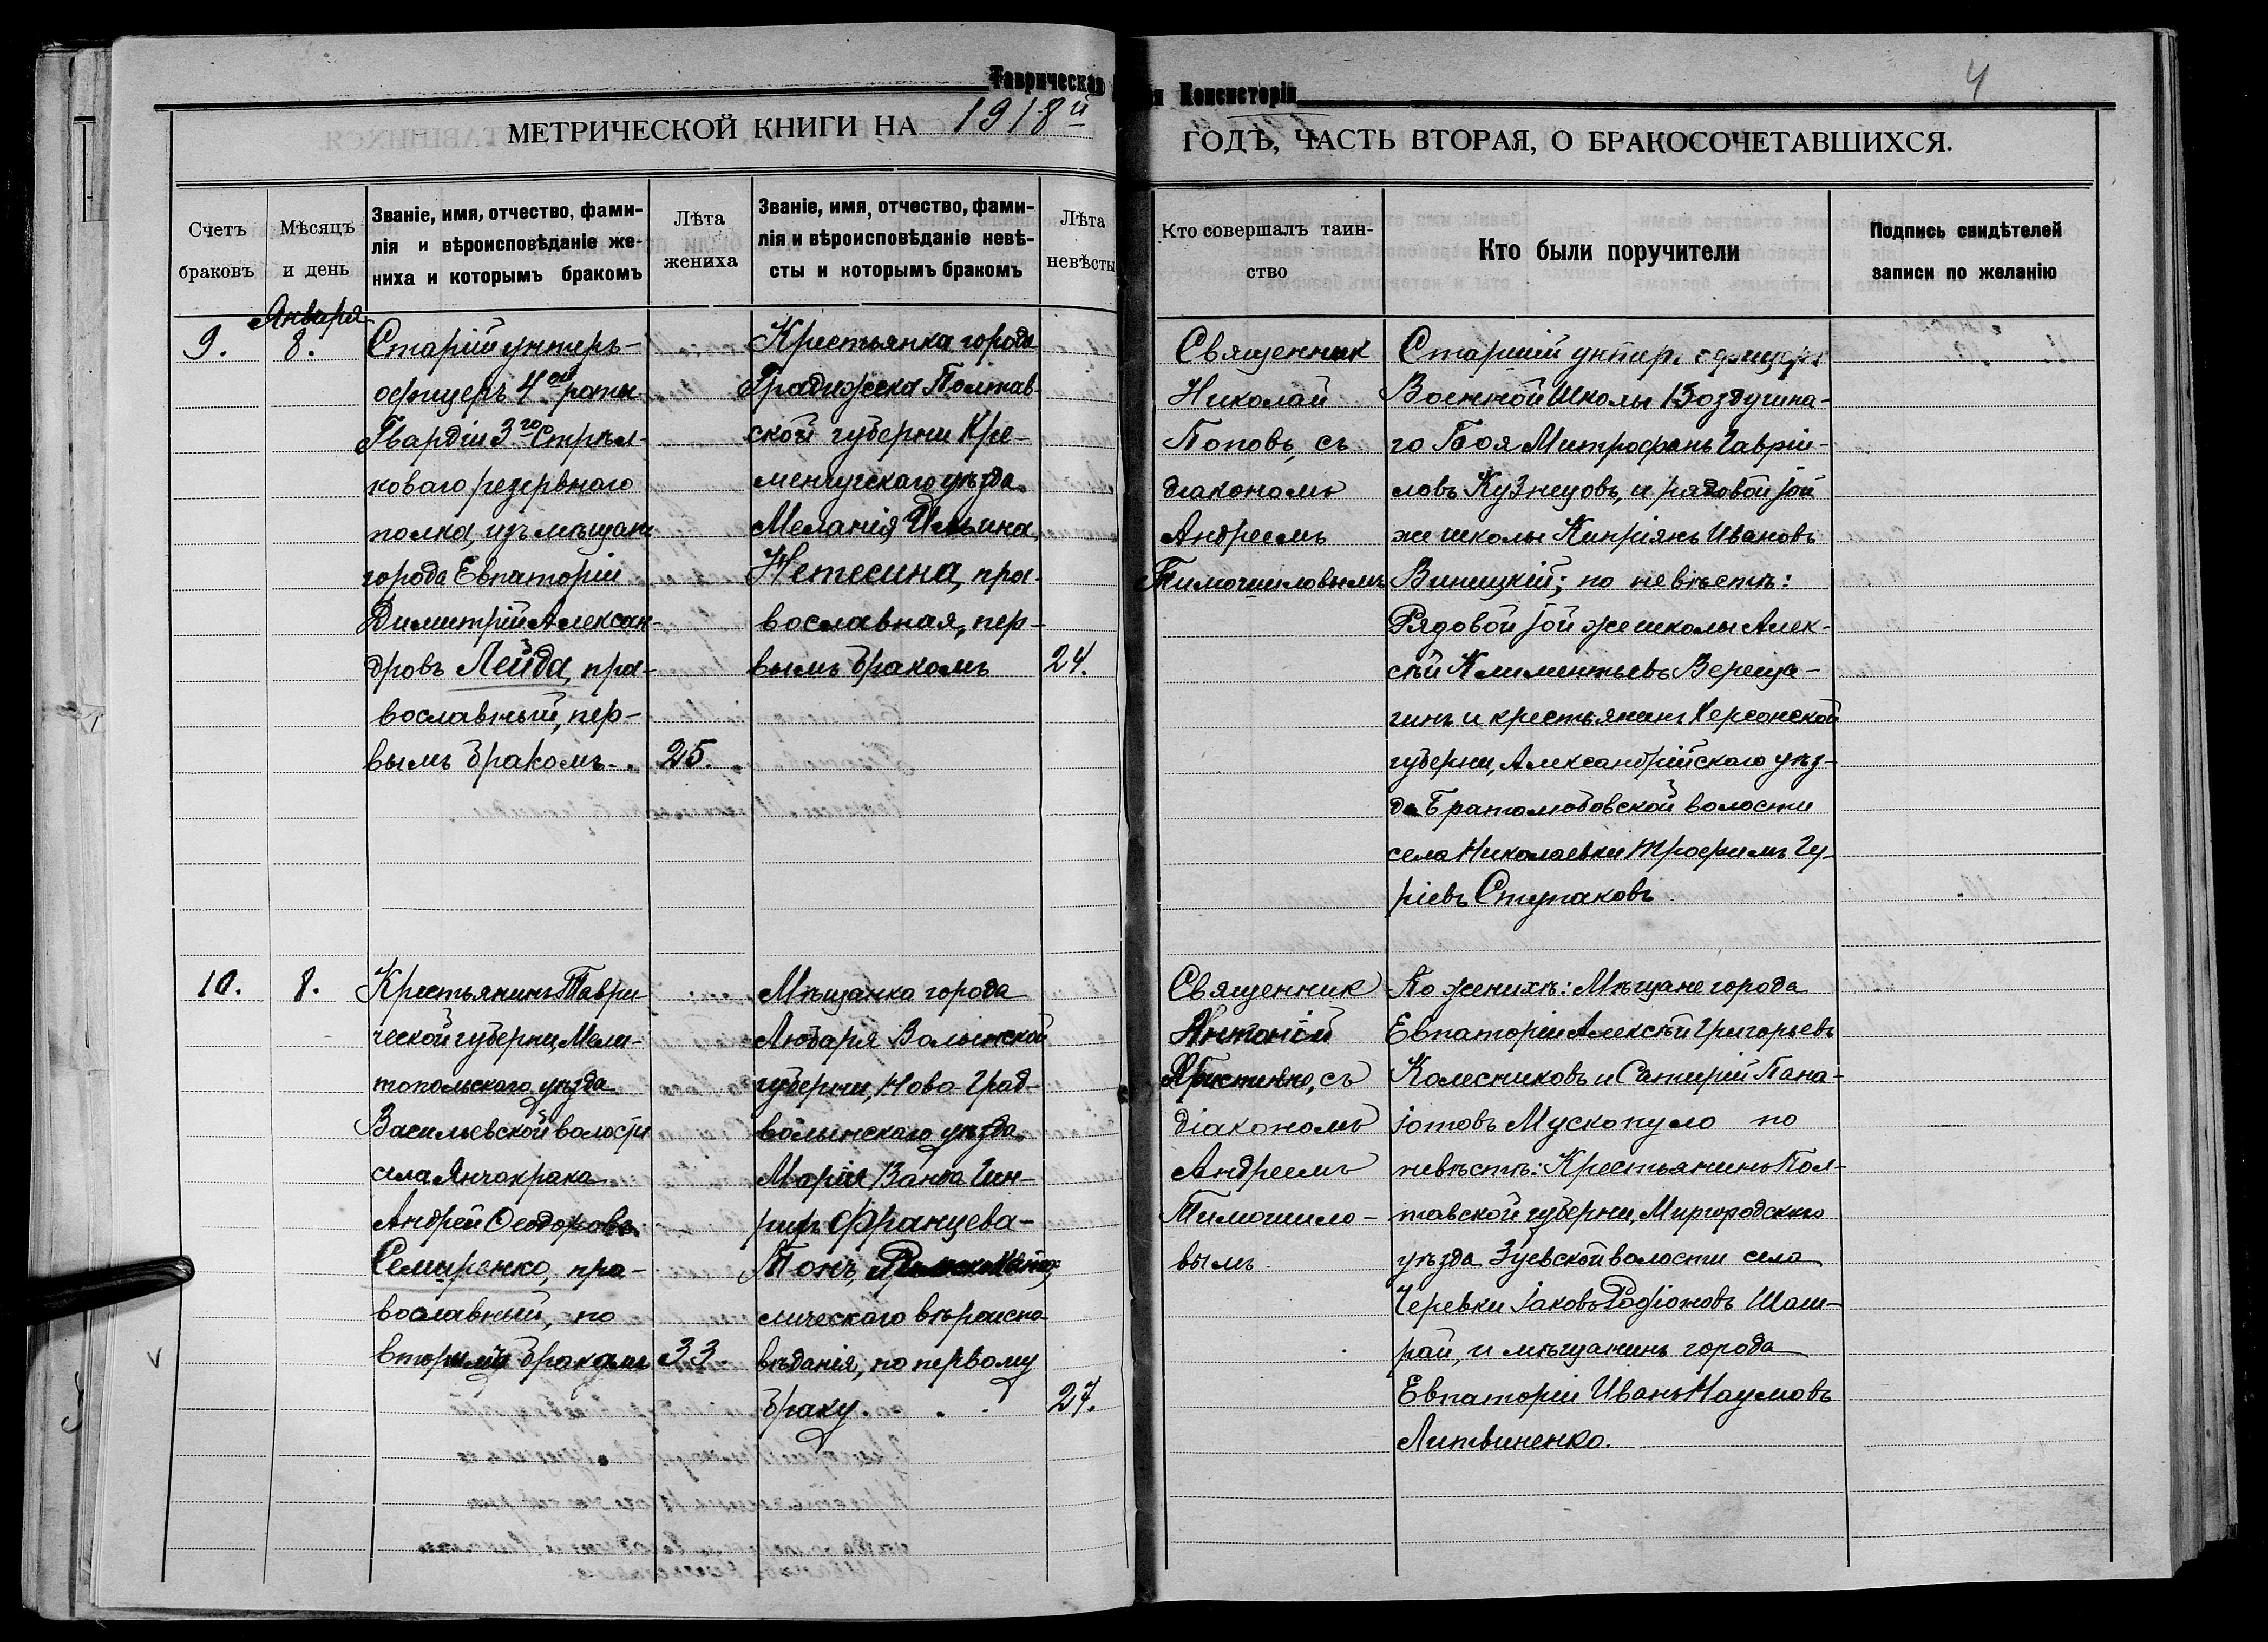 Таврическая
Консисторіи
4
МЕТРИЧЕСКОЙ КНИГИ НА 1918й
ГОДЪ, ЧАСТЬ ВТОРАЯ, О БРАКОСОЧЕТАВШИХСЯ.
Счетъ
браковъ
Мѣсяцъ
и день
Званіе, имя, отчество, фами-
лія и вѣроисповѣданіе же-
ниха и которымъ бракомъ
Лѣта
жениха
Званіе, имя, отчество, фами-
лія и вѣроисповѣданіе невѣ-
сты и которымъ бракомъ
Лѣта
невѣсты
Кто совершалъ таин-
ство
Кто были поручители
Подпись свидѣтелей
записи по желанію
Января
9.
8.
Старій унтеръ-
офицеръ 4ой роты
Гвардіи 3го Стрѣл-
коваго резервнаго
полка, изъ мѣщанъ
города Евпаторіи
Димитрій Алексан-
дровъ Лейда, пра-
вославный, пер-
вымъ бракомъ.
25.
Крестьянка города
Градижска Полтав-
ской губерни Кре-
менчугскаго уѣзда
Меланія Ильина
Нетесина, пра-
вославная, пер-
вымъ бракомъ
24.
Священник
Николай
Поповъ, съ
діакономъ
Андреемъ
Тимошиловымъ
Старшій унтер. офицеръ
Военной Школы Воздушна-
го Боя Митрофанъ Гаврій-
ловъ Кузнецовъ, и рядовой той
же школы Кипріянъ Ивановъ
Виницкій; по невѣстѣ:
Рядовой той же школы Алек-
сѣй Климентьевъ Вереща-
гинъ и крестьянинъ Херсонской
губерни, Александрійскаго уѣз-
да Братолюбовской волости
села Николаевки Трофимъ Гу-
ріевъ Ступаковъ
10.
8.
Крестьянинъ Таври-
ческой губерни, Мели-
топольскаго уѣзда
Васильевской волости
села Янчокрака
Андрей Ѳеодоровъ
Семиренко, пра-
вославный, по
вторымъ бракомъ
33
Мѣщанка города
Любаря Волынской
губерни, Ново Град-
волынскаго уѣзда
Марія Ванда Ген-
риф Францева-
Тонъ Римско Като-
лическаго вѣроиспо-
вѣданія, по первому
браку.
27.
Священник
Антоній
съ
діакономъ
Андреемъ
Тимошило-
вымъ
По женихѣ: Мѣщане города
Евпаторіи Алексѣй Григорьевъ
Колесниковъ и Сатирій Пана-
іотовъ Мускопуло по
невѣстѣ: Крестьянинъ Пол-
тавской губерни, Миргородскаго
уѣзда Зуевской волости села
Черевки Іаковъ Родіоновъ Шаш-
рай, и мѣщанинъ города
Евпаторіи Иванъ Наумовъ
Литвиненко.